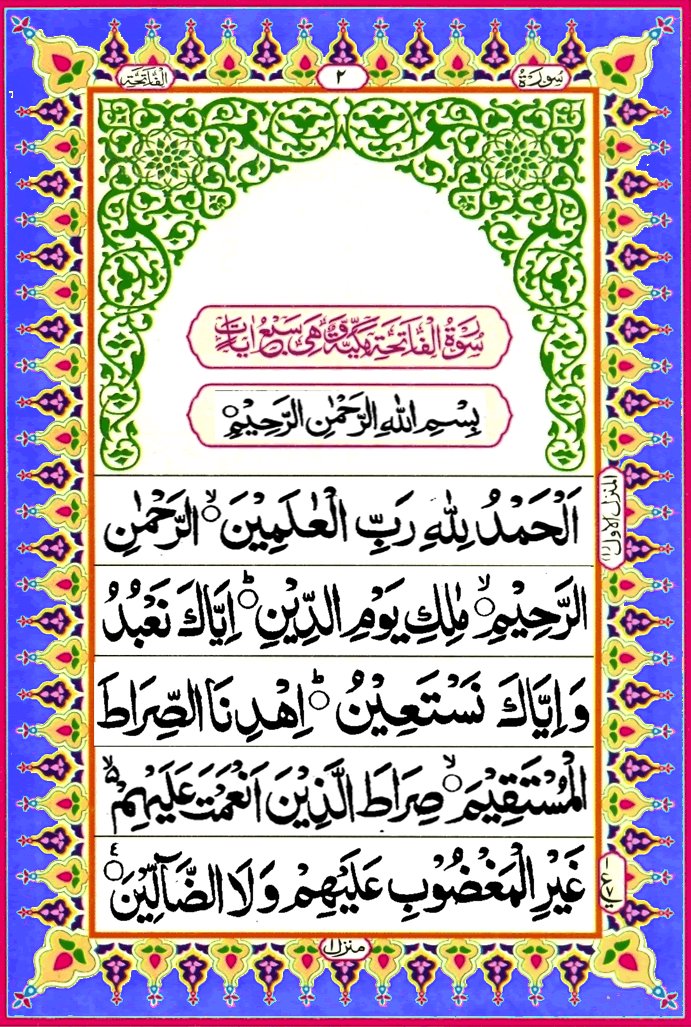 سورة ٢ الفاتحة
سُوْرَةُ الْفَاتِحَةِ مَكِّيَّةٌ وَّهِيَ سَبْعُ اٰيَاتٍ
بِسْمِ اللّٰهِ الرَّحْمٰنِ الرَّحِيْمِ
اَلْحَمْدُ لِلّٰهِ رَبِّ الْعٰلَمِيْنَۙ الرَّحْمٰنِ
المنزل الاول (١)
الرَّحِيْمِۙ مٰلِكِ يَوْمِ الدِّيْنِؕ اِيَّاكَ نَعْبُدُ
وَاِيَّاكَ نَسْتَعِيْنُؕ اِهْدِنَا الصِّرَاطَ
الْمُسْتَقِيْمَۙ صِرَاطَ الَّذِيْنَ اَنْعَمْتَ عَلَيْهِمْ ۙ۬
غَيْرِ الْمَغْضُوْبِ عَلَيْهِمْ وَلَا الضَّآلِّيْنَ
منزل ١